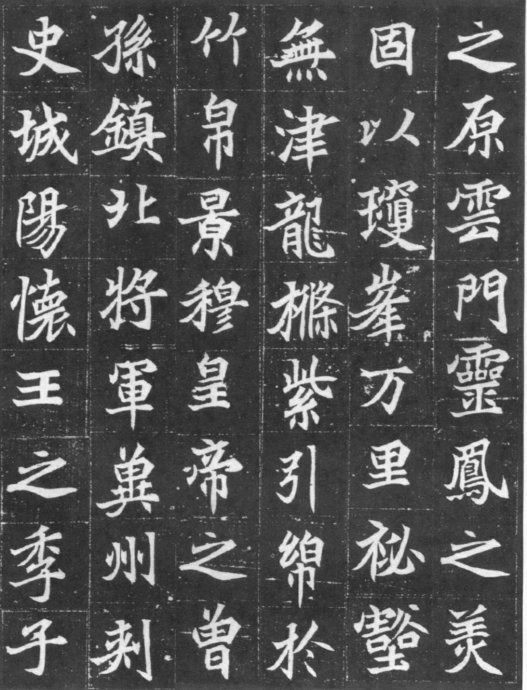 之原雲門靈鳳之美
固以瓊峯万里祕壑
無津龍樤紫引綿於
竹帛景穆皇帝之曾
孫鎮北將軍兾州刺
史城陽懷王之季子